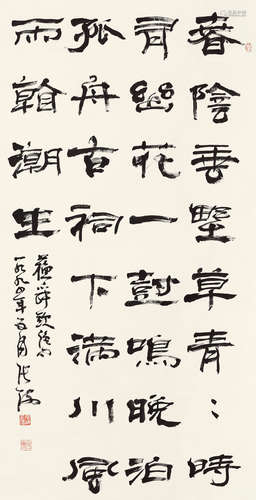 春陰垂埜草青〻時
有幽花一樹鳴晚泊
孤舟古祠下滿川風
雨看潮生
蘇舜欽絕句
一九九四年五月张海